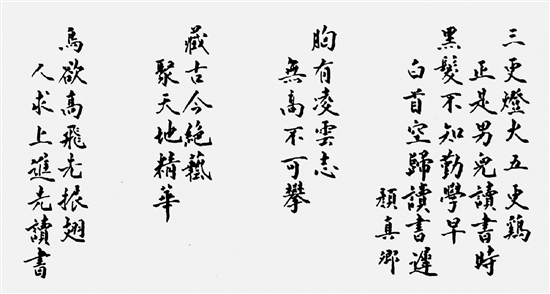 三更燈火五更鷄
正是男兒讀書時
黑髮不知勤學早
白首空歸讀書遲
顏真卿
胸有凌雲志
無高不可攀
藏古今絕藝
聚天地精華
鳥欲高飛先振翅
人求上進先讀書